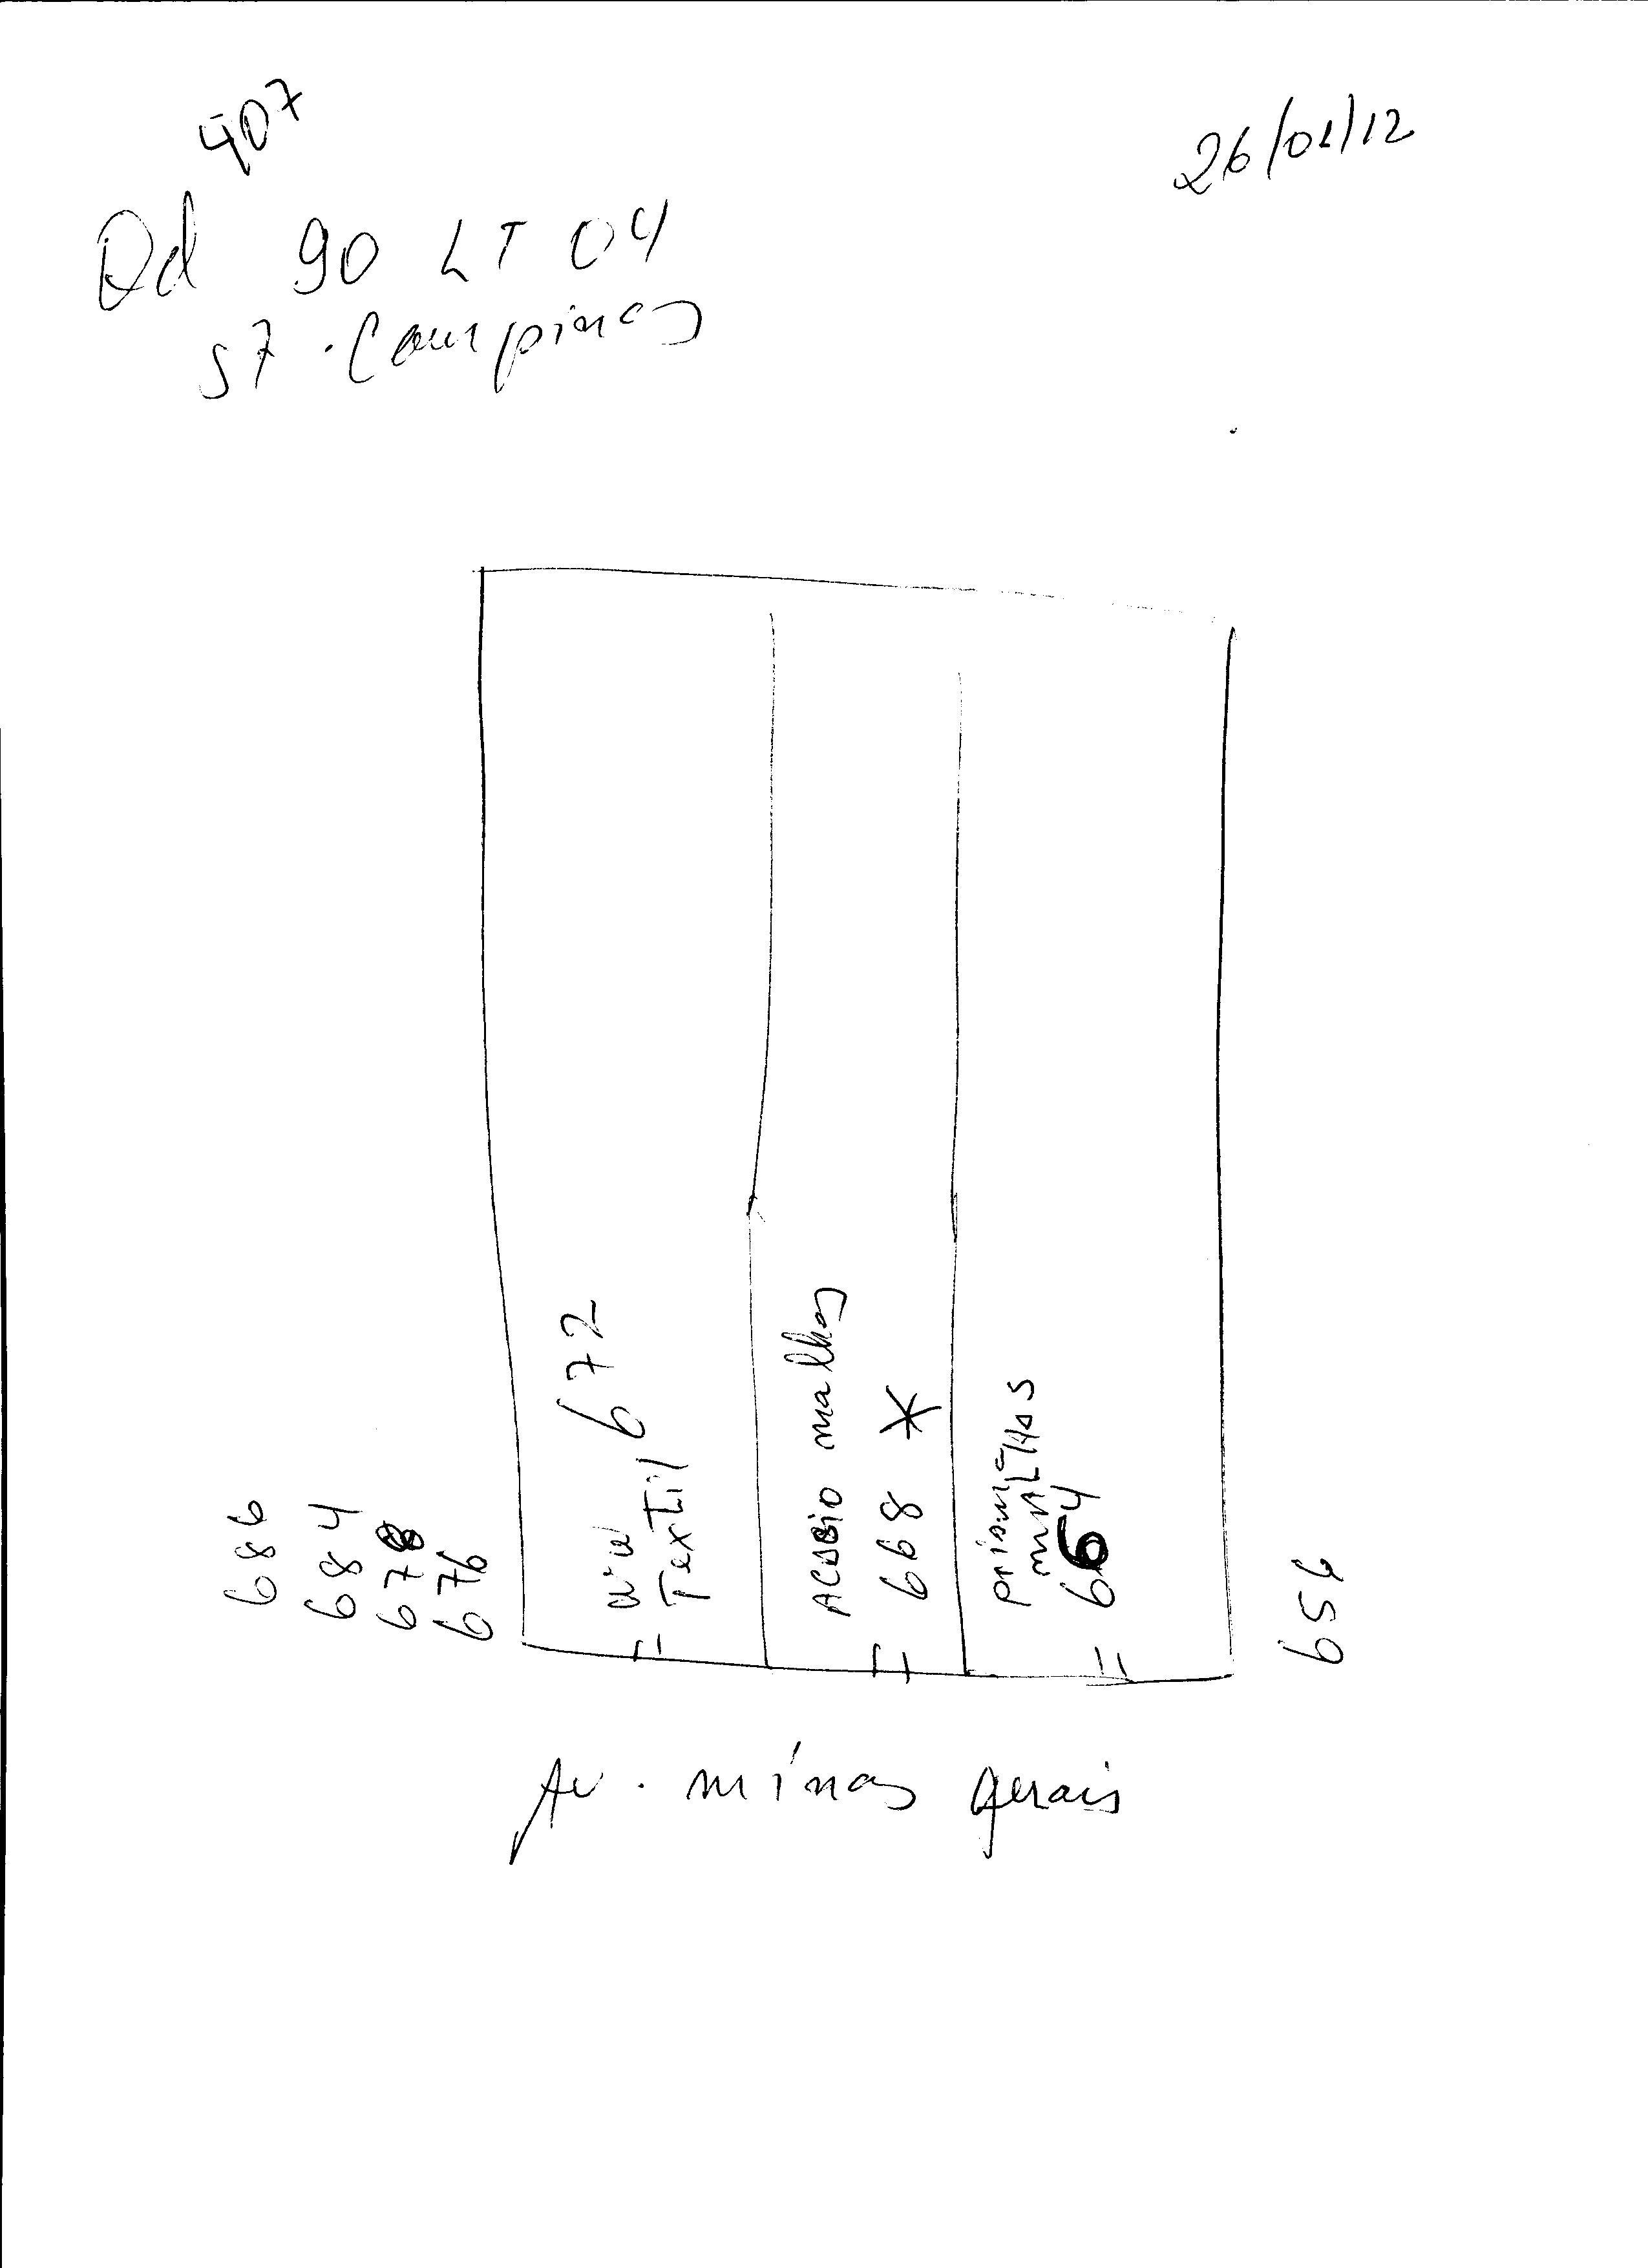 407
26/01/12
Qd 90 LT 04
ST. Campinas
686
684
678
676
672
Textil
malhas
668 *
prisma
MALHAS
664
656
Av. minas gerais